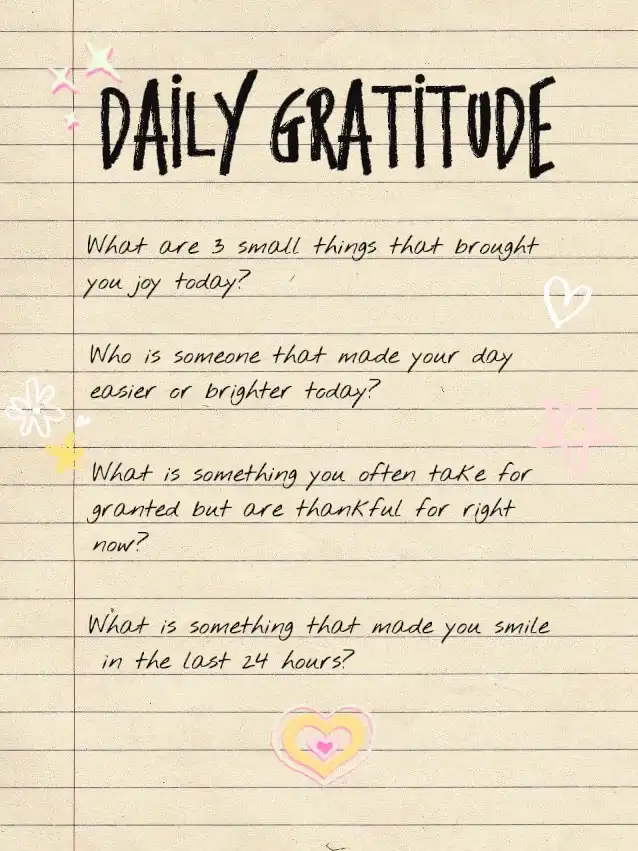 DAiLY GRATiTUDE
What are 3 small things that brought
you joy today?
Who is someone that made your day
easier or brighter today?
What is something you often take for
granted but are thankful for right
now?
What is something that made you smile
in the last 24 hours?